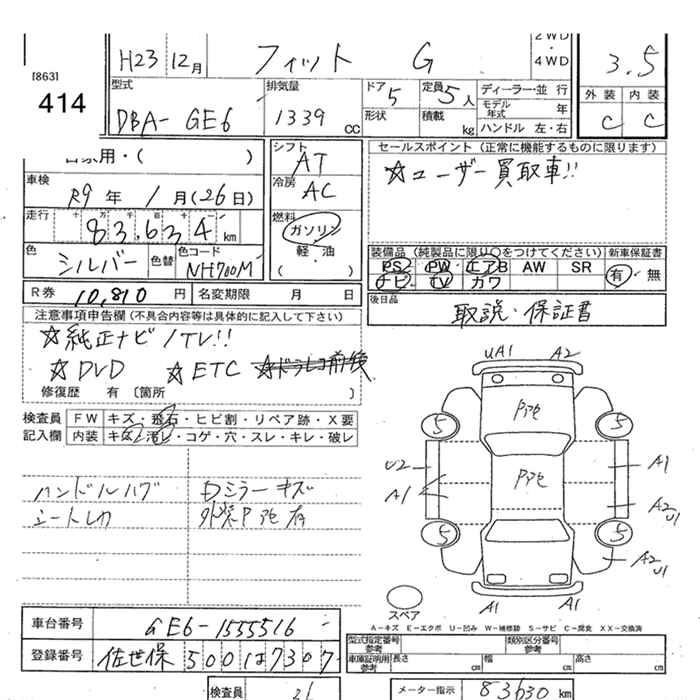 [863]
414
H23 12月 フィット G
2WD
・
4WD
3.5
型式
DBA- GE6
排気量
1339 CC
ドア 5
形状
定員 5人
積載 kg
ディーラー・並 行
モデル年式 年
ハンドル 左・右
外 装 内 装
C C
用・( )
車検
R9 年 1 月(26日)
走行 十 万 千 百 十 一
83,634 km
色 シルバー 色替 色コード NH700M
シフト
AT
冷房
AC
燃料
ガソリン
軽・油
( ・ )
セールスポイント (正常に機能するものに限ります)
☆ユーザー買取車!!
装備品 (純製品に限り○をつけてください) 新車保証書
PS PW エアB AW SR 有・無
ナビ TV カワ
R券 10,810 円 名変期限 月 日
後日品
取説・保証書
注意事項申告欄(不具合内容等は具体的に記入して下さい)
☆純正ナビ/TV!!
☆DVD ☆ETC ☆ドラレコ前後
修復歴 有 〔箇所 〕
検査員
記入欄
FW キズ・飛石・ヒビ割・リペア跡・X要
内装 キズ・汚レ・コゲ・穴・スレ・キレ・破レ
ハンドルハゲ Dミラーキズ
外装Pアセ有
UA1 A2
Pアセ
5 5
U2 Pアセ A1
A1 A2 U1
5 5
A2 U1
スペア A1 A1
A-キズ E-エクボ U-凹み W-補修跡 S-サビ C-腐食 XX-交換済
車台番号 GE6-1555516
登録番号 佐世保 500 は 7307
型式指定番号 参考 類別区分番号 参考
車庫証明用 参考 長さ cm 幅 cm 高さ cm
検査員
メーター指示 83630 km